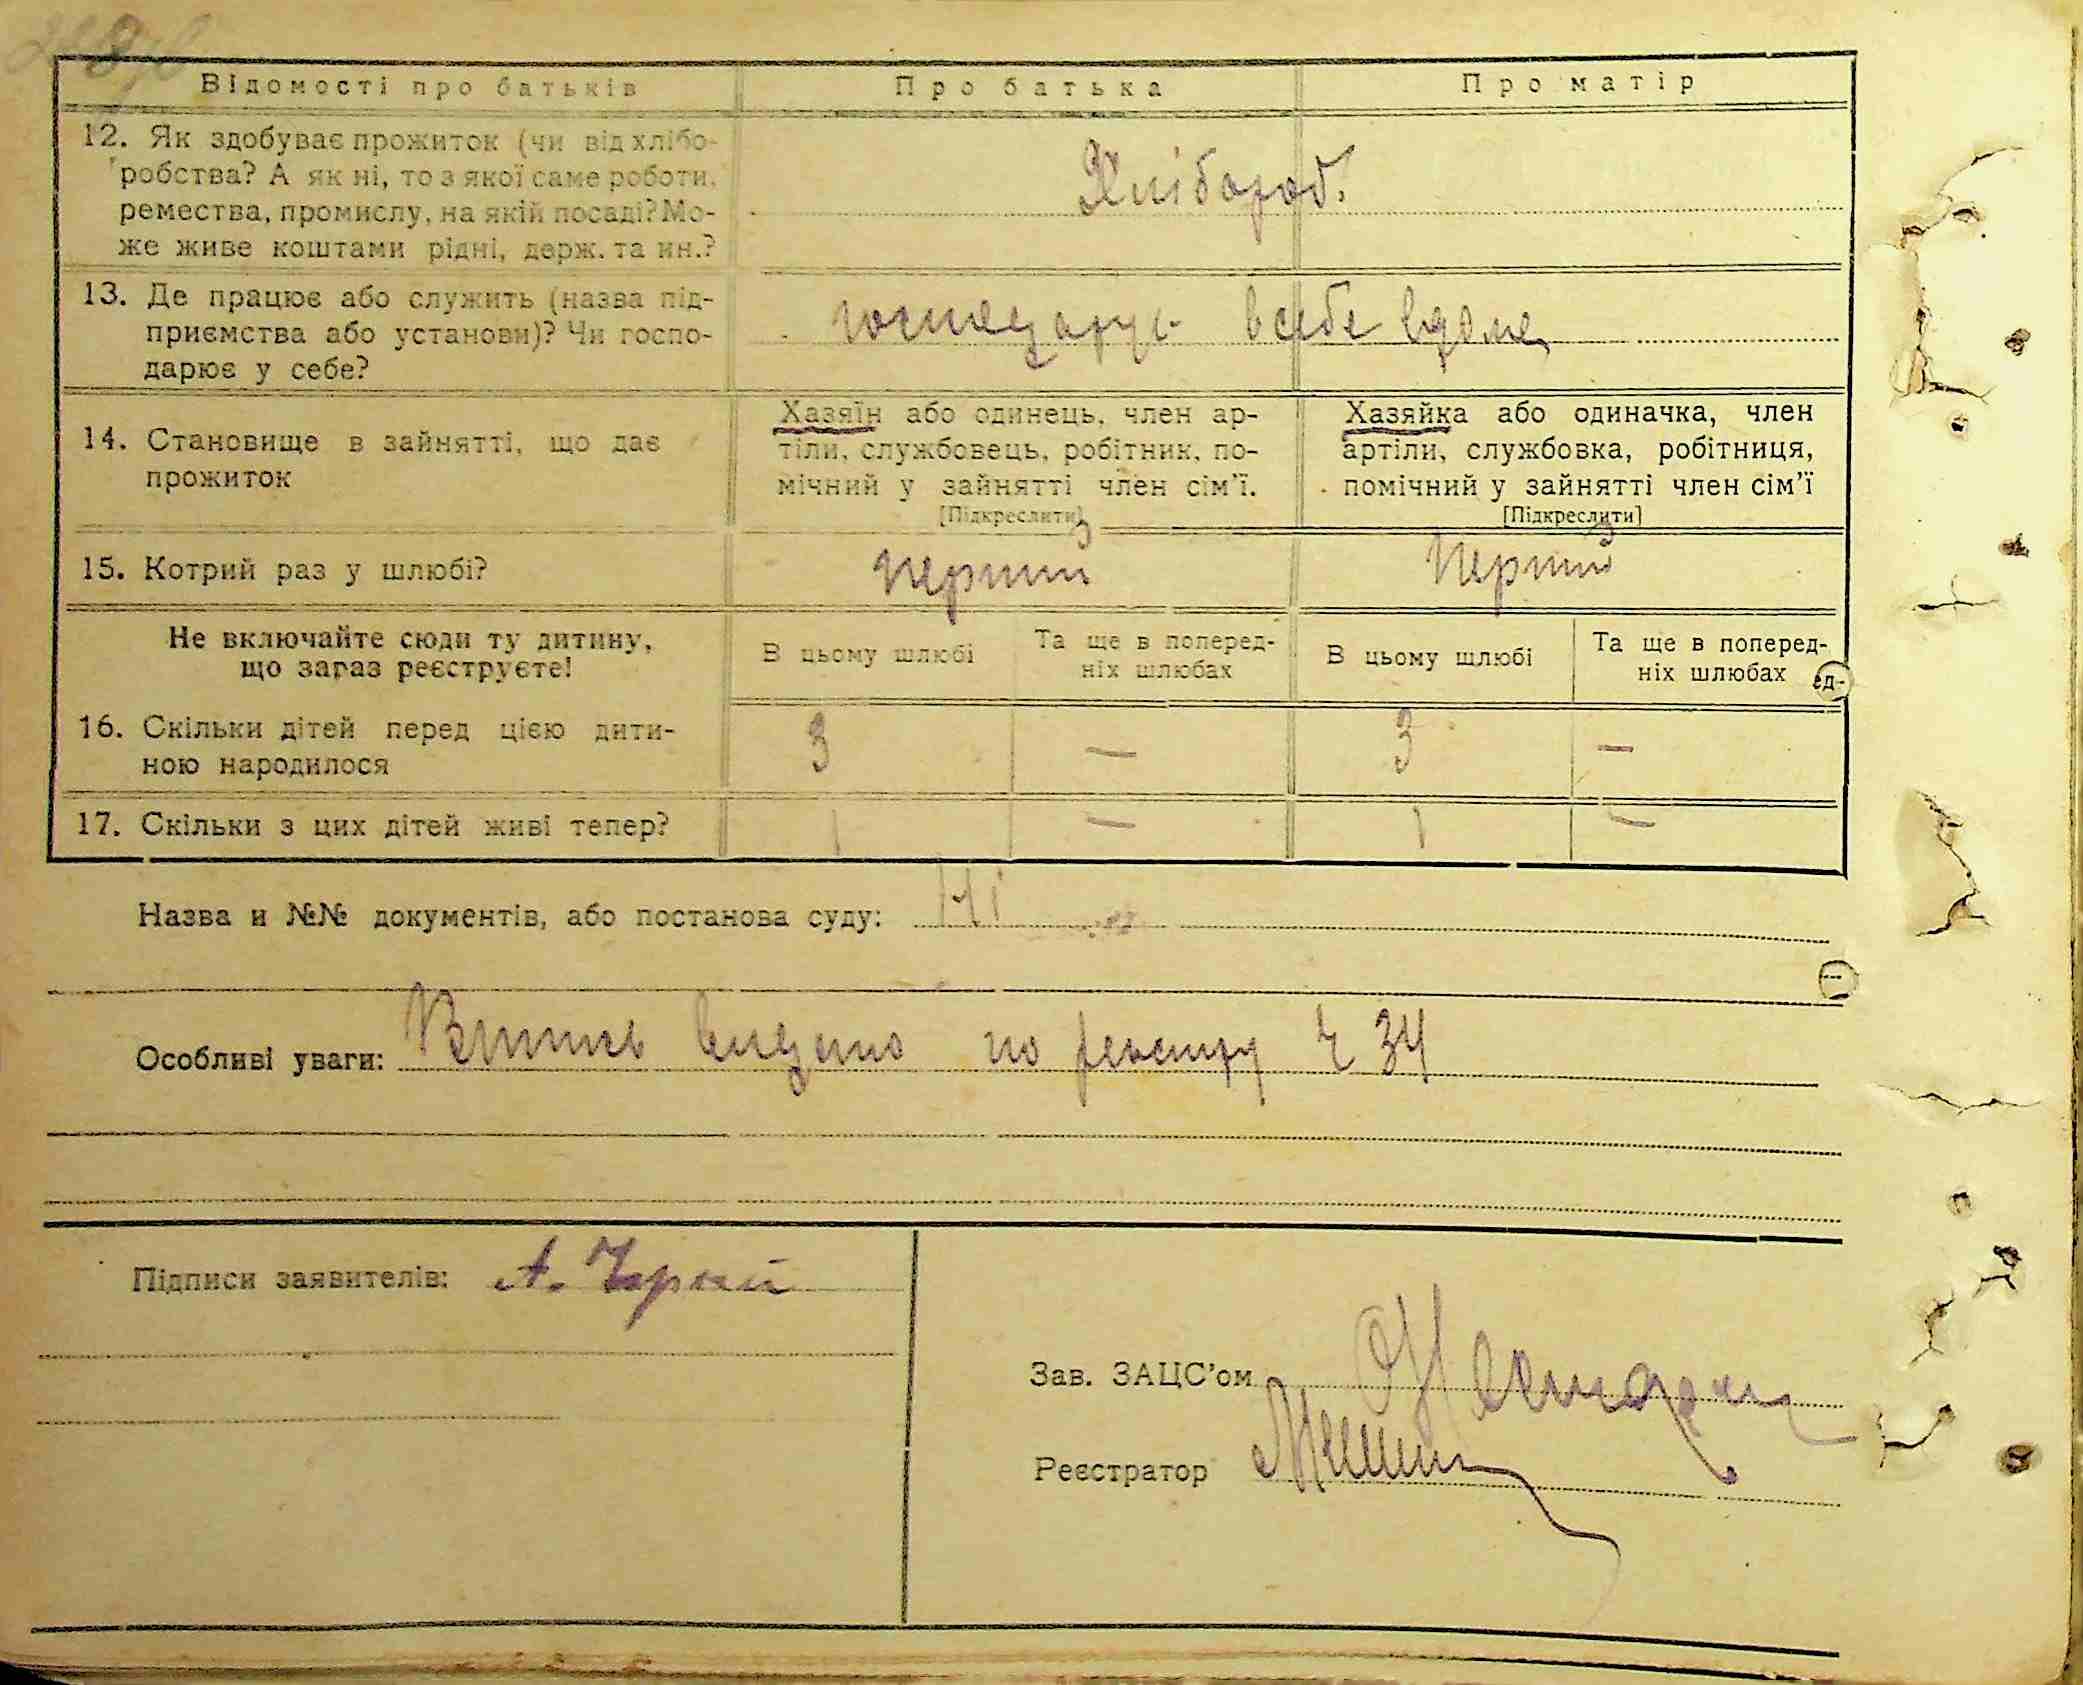 Відомості про батьків Про батька Про матір
12. Як здобуває прожиток (чи від хлібо-
робства? А як ні, то з якої саме роботи,
ремества, промислу, на якій посаді? Мо-
же живе коштами рідні, держ. та ин.?
Хлібороб.
13. Де працює або служить (назва під-
приємства або установи)? Чи госпо-
дарює у себе?
господарує в себе вдома
14. Становище в зайнятті, що дає
прожиток
Хазяїн або одинець, член ар-
тіли, службовець, робітник, по-
мічний у зайнятті член сім'ї.
[Підкреслити]
Хазяйка або одиначка, член
артіли, службовка, робітниця,
помічний у зайнятті член сім'ї
[Підкреслити]
15. Котрий раз у шлюбі? перший перший
Не включайте сюди ту дитину,
що зараз реєструєте!
В цьому шлюбі
Та ще в поперед-
ніх шлюбах
В цьому шлюбі
Та ще в поперед-
ніх шлюбах
ед-
16. Скільки дітей перед цією дити-
ною народилося
3 — 3 —
17. Скільки з цих дітей живі тепер? 1 — 1 —
Назва и №№ документів, або постанова суду: Ні
Особливі уваги: Витись видано по реєстру ч 34
Підписи заявителів: А. Чорний
Зав. ЗАЦС'ом
Реєстратор